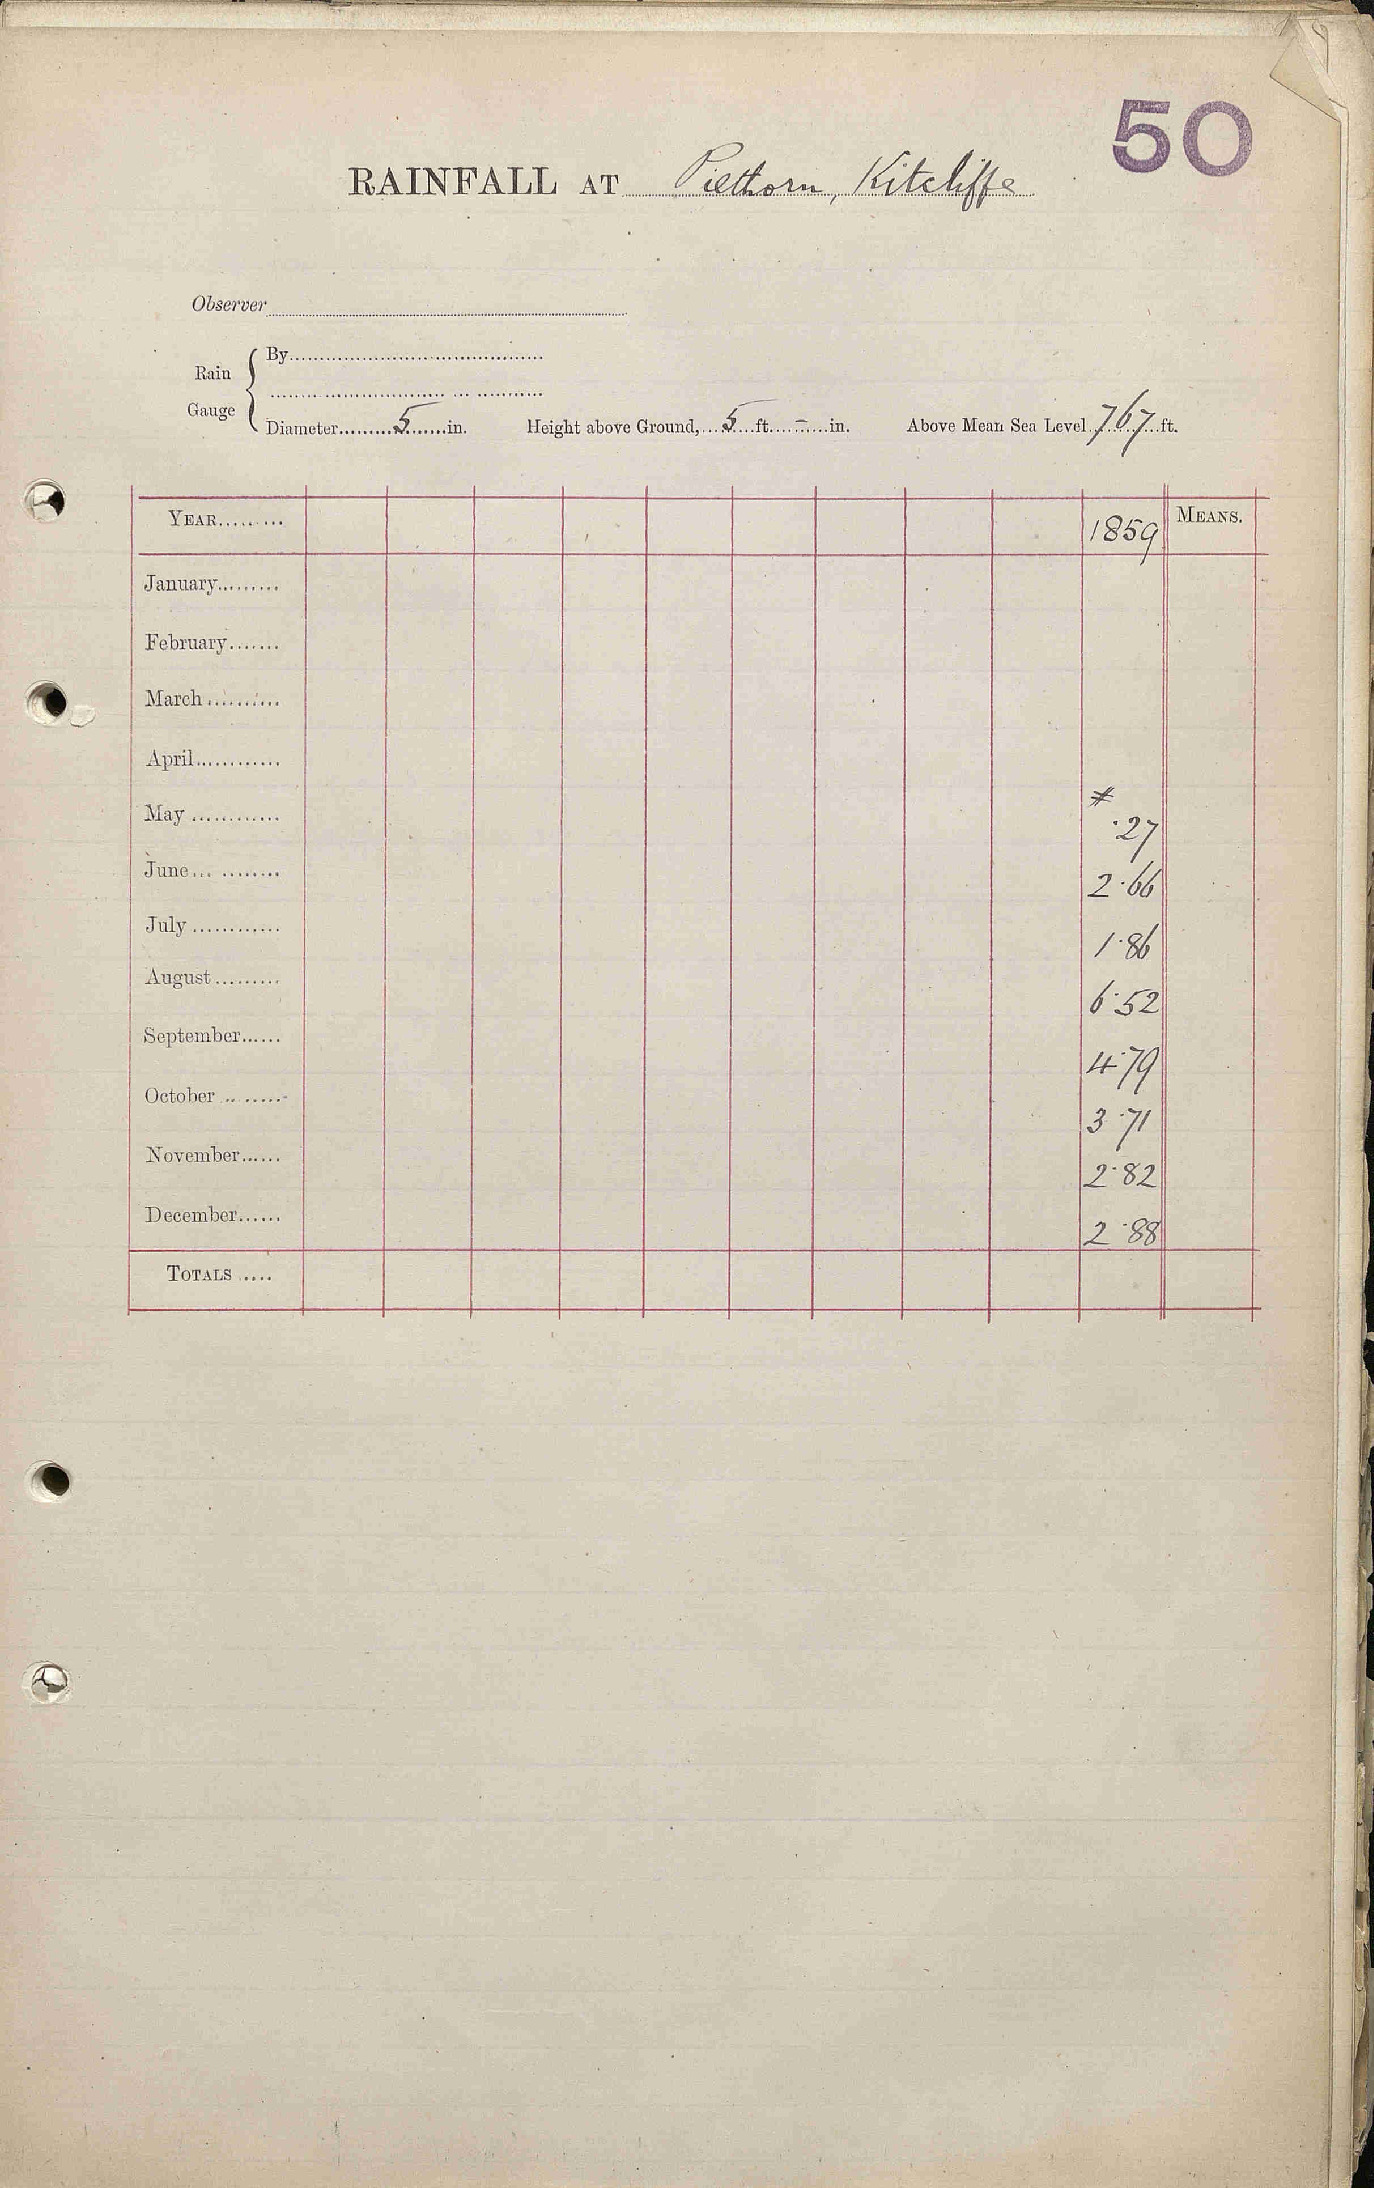 50
RAINFALL AT Piethorn, Kitcliffe
Observer
Rain Gauge
By
Diameter 5 in. Height above Ground, 5 ft. - in. Above Mean Sea Level 767 ft.
YEAR 1859 MEANS.
January
February
March
April
May # .27
June 2.66
July 1.86
August 6.52
September 4.79
October 3.71
November 2.82
December 2.88
TOTALS